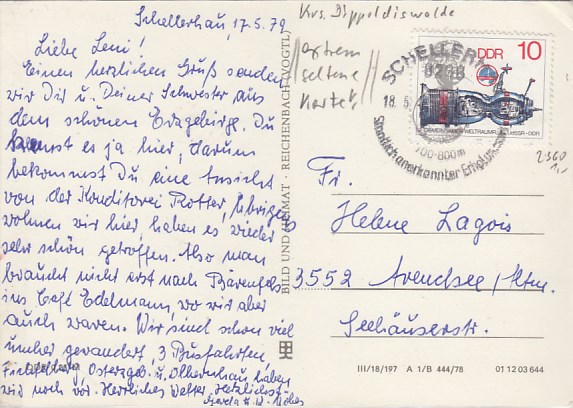 Schellerhau, 17.5.79
Liebe Leni!
Einen herzlichen Gruß senden
wir Dir u. Deiner Schwester aus
dem schönen Erzgebirge. Du
kennst es ja hier, darum
bekommst Du eine Ansicht
von der Konditorei Rotter, übrigens
wohnen wir hier, haben es wieder
sehr schön getroffen. Also man
braucht nicht erst nach Bärenfels
ins Café Edelmann, wo wir aber
auch waren. Wir sind schon viel
umher gewandert, 3 Busfahrten
Fichtelberg, Osterzgeb. u. Olbernhau haben
wir noch vor. Herrliches Wetter. Herzlichst
Gerda u. W.
BILD UND HEIMAT · REICHENBACH (VOGTL)
Krs. Dippoldiswalde
extrem
seltene
Karte!
SCHELLERHAU
8239
18.5.
700-800m
Staatlich anerkannter Erholungsort
DDR 10
GEMEINSAMER WELTRAUMFLUG UdSSR-DDR
2360
1,-
Fr.
Helene Lagois
3552 Arendsee/Altm.
Seehäuserstr.
III/18/197 A 1/B 444/78 01 12 03 644